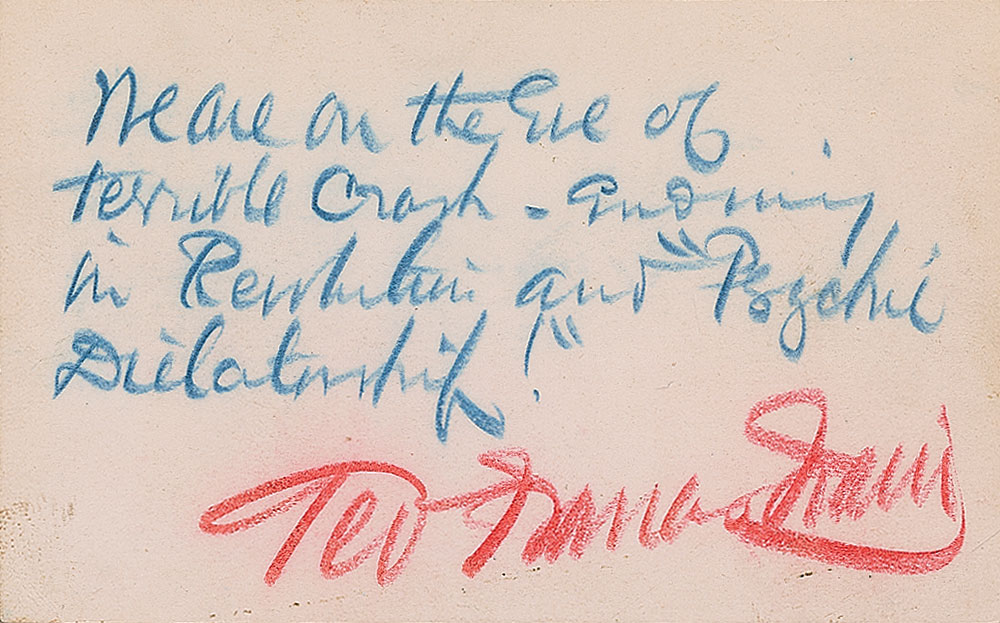 We are on the Eve of
terrible Crash - Ending
in Revolution and "Psychic
Dictatorship!"